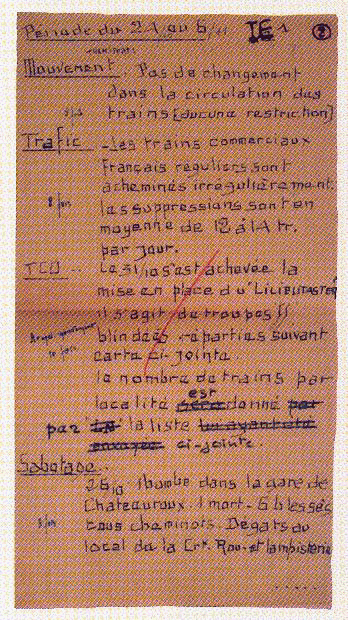 Période du 24 au 6/11 IE 1 ②
Mouvement. Pas de changement
dans la circulation des
trains [aucune restriction]
Trafic - Les trains commerciaux
Français réguliers sont
acheminés irrégulièrement.
les suppressions sont en
moyenne de 12 à 14 tr.
par jour.
TCO.. Le 31/10 s'est achevée la
mise en place d'u "LILIPUTASTER
il s'agit de troupes SS
blindées réparties suivant
carte ci-jointe.
le nombre de trains par
est
localité donné
par la liste
ci-jointe.
Sabotage.
26/10 1 bombe dans la gare de
Chateauroux. 1 mort - 6 blessés
tous cheminots. Dégats au
local de la et lampisterie